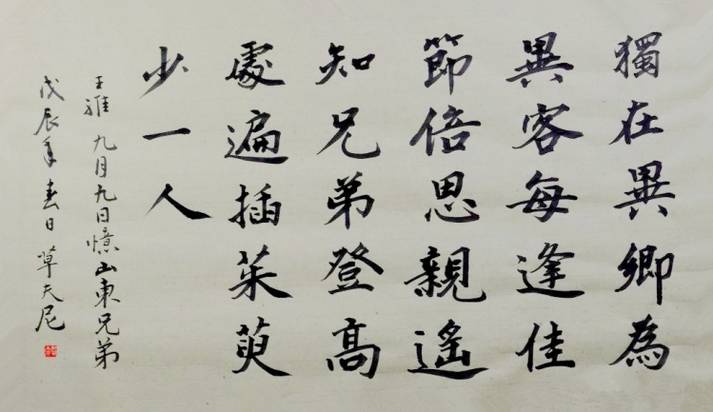 獨在異鄉為
異客每逢佳
節倍思親遙
知兄弟登高
處遍插茱萸
少一人
王維九月九日憶山東兄弟
戊辰年春日草天尼